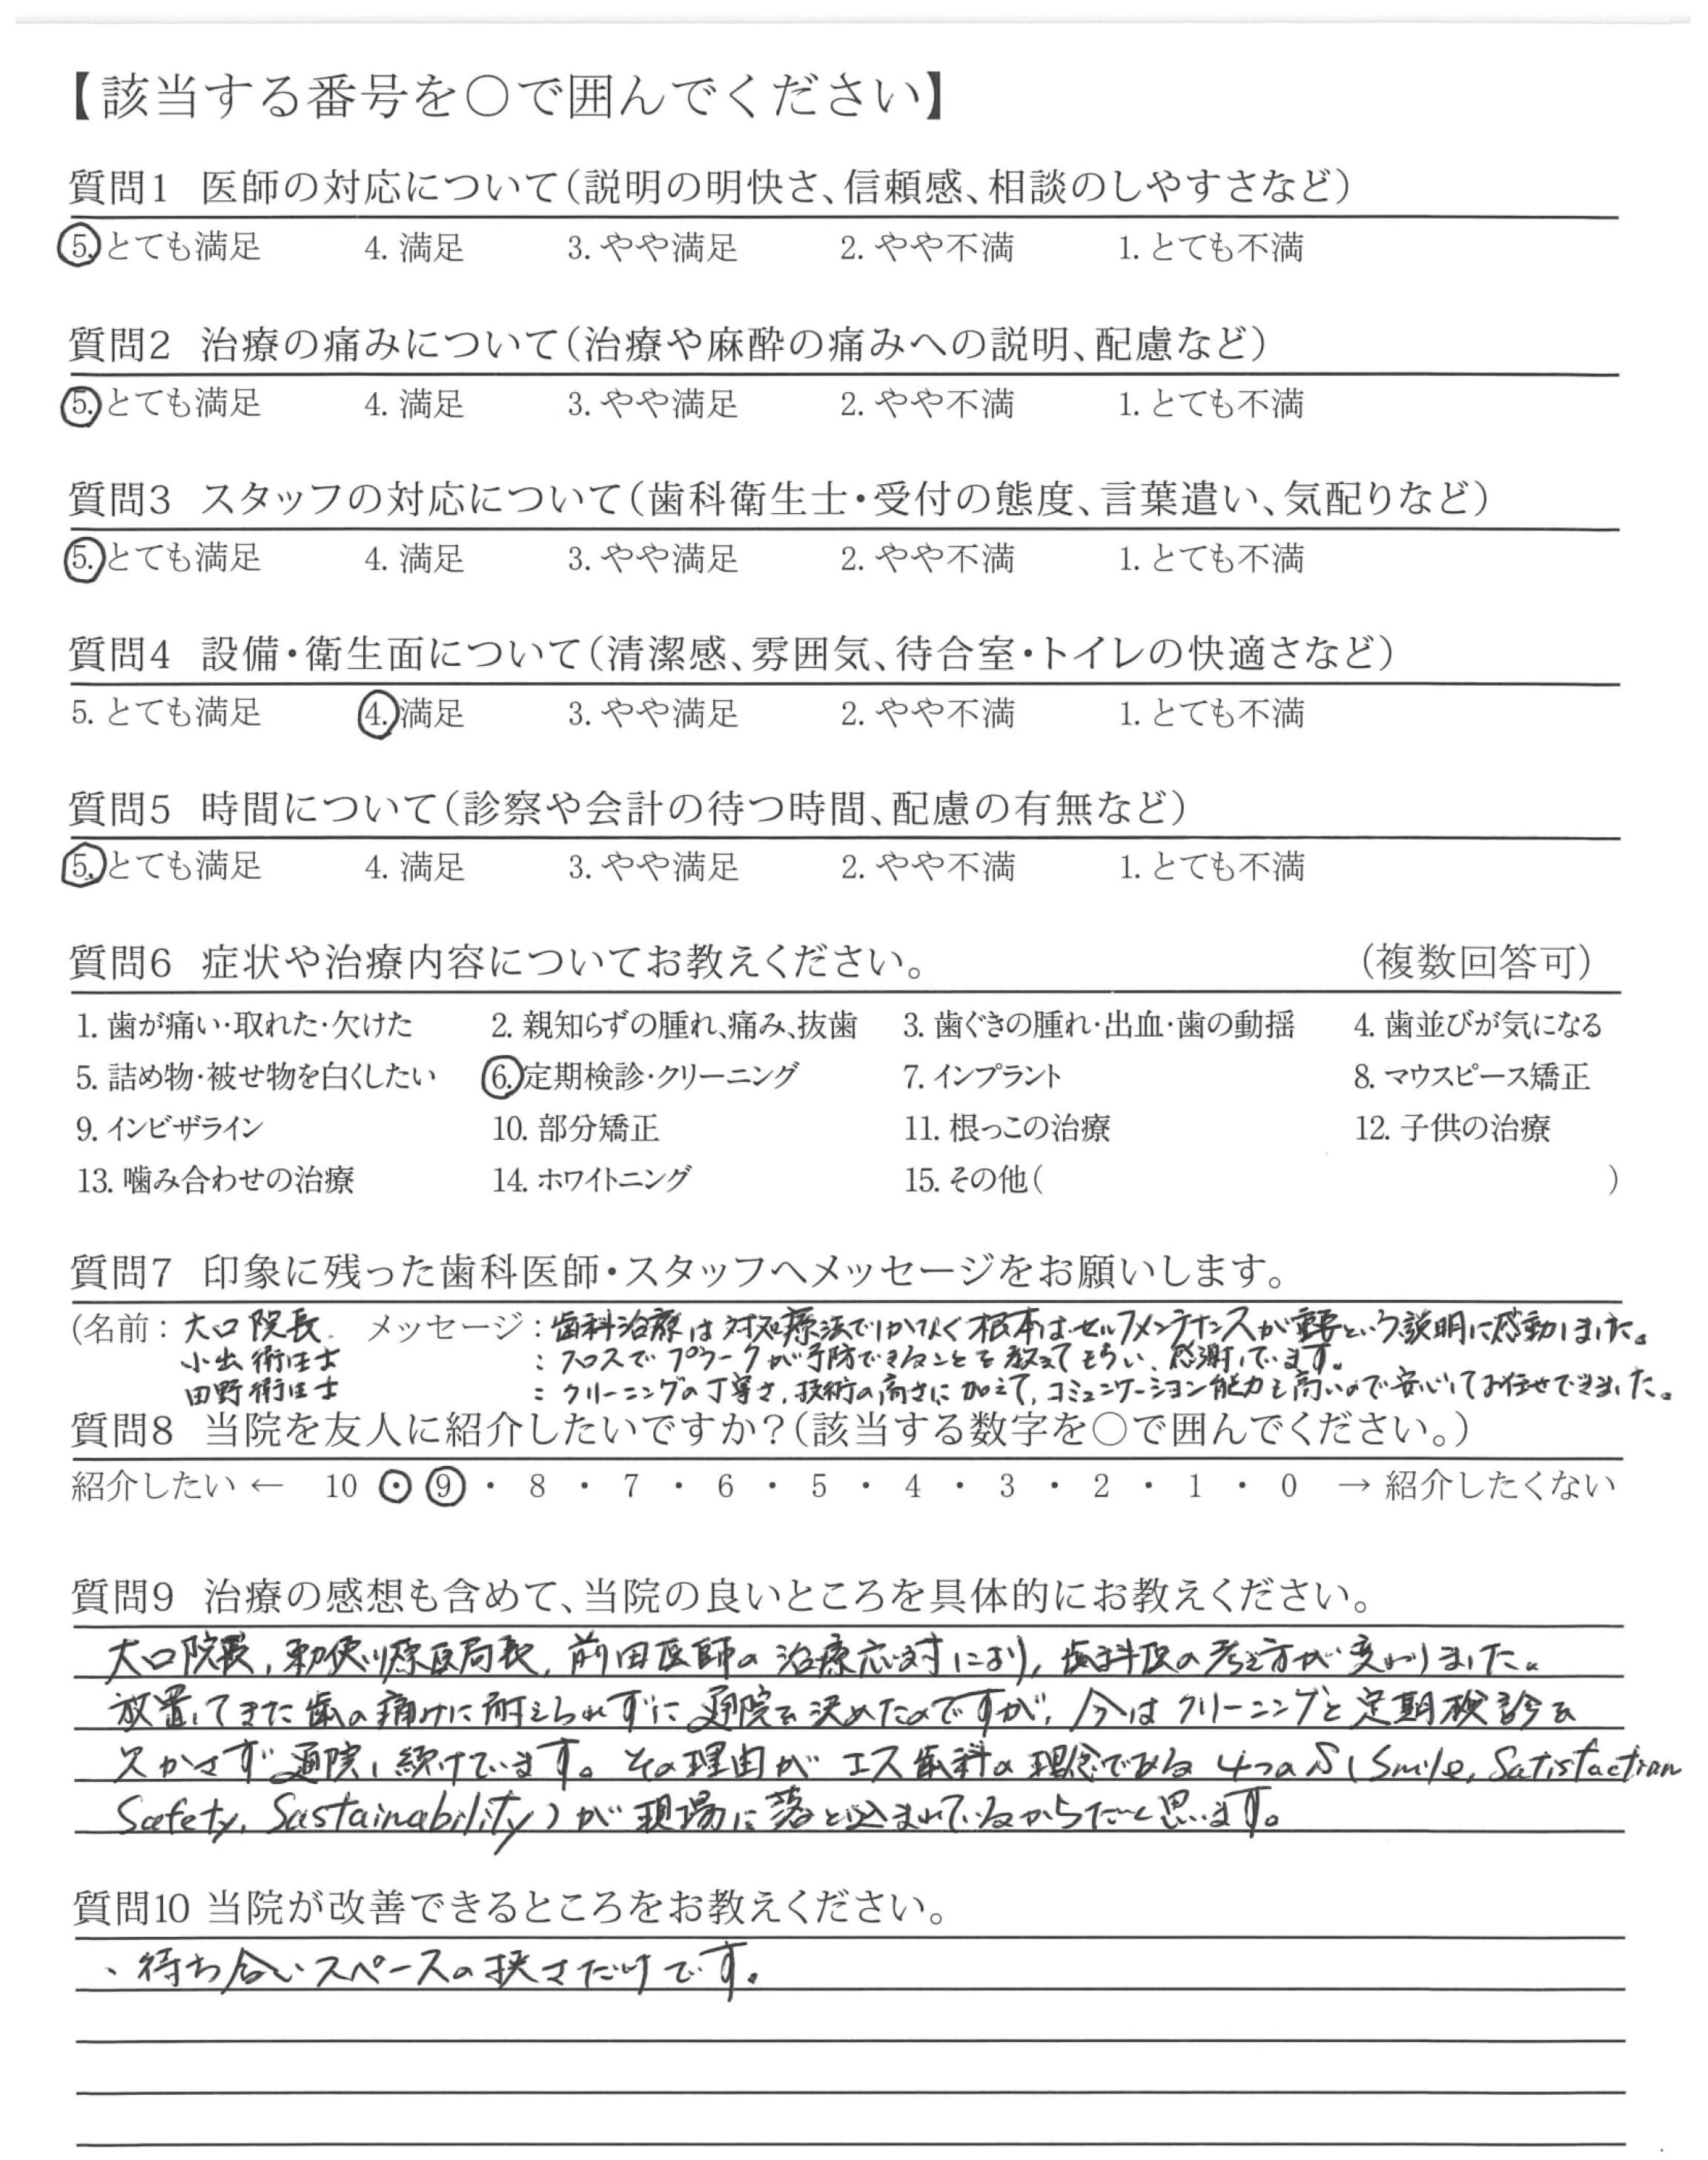 【該当する番号を〇で囲んでください】
質問1 医師の対応について（説明の明快さ、信頼感、相談のしやすさなど）
5. とても満足 4. 満足 3. やや満足 2. やや不満 1. とても不満
質問2 治療の痛みについて（治療や麻酔の痛みへの説明、配慮など）
5. とても満足 4. 満足 3. やや満足 2. やや不満 1. とても不満
質問3 スタッフの対応について（歯科衛生士・受付の態度、言葉遣い、気配りなど）
5. とても満足 4. 満足 3. やや満足 2. やや不満 1. とても不満
質問4 設備・衛生面について（清潔感、雰囲気、待合室・トイレの快適さなど）
5. とても満足 4. 満足 3. やや満足 2. やや不満 1. とても不満
質問5 時間について（診察や会計の待つ時間、配慮の有無など）
5. とても満足 4. 満足 3. やや満足 2. やや不満 1. とても不満
質問6 症状や治療内容についてお教えください。 （複数回答可）
1. 歯が痛い・取れた・欠けた 2. 親知らずの腫れ、痛み、抜歯 3. 歯ぐきの腫れ・出血・歯の動揺 4. 歯並びが気になる
5. 詰め物・被せ物を白くしたい 6. 定期検診・クリーニング 7. インプラント 8. マウスピース矯正
9. インビザライン 10. 部分矯正 11. 根っこの治療 12. 子供の治療
13. 噛み合わせの治療 14. ホワイトニング 15. その他（ ）
質問7 印象に残った歯科医師・スタッフへメッセージをお願いします。
（名前：大口院長 メッセージ：歯科治療は対処療法でしかなく根本はセルフメンテナンスが重要という説明に感動しました。
小出衛生士 ：フロスでプラークが予防できることを教えてもらい、感謝しています。
田野衛生士 ：クリーニングの丁寧さ、技術の高さに加えて、コミュニケーション能力も高いので安心してお任せできました。
質問8 当院を友人に紹介したいですか？（該当する数字を〇で囲んでください。）
紹介したい ← 10 ・ 9 ・ 8 ・ 7 ・ 6 ・ 5 ・ 4 ・ 3 ・ 2 ・ 1 ・ 0 → 紹介したくない
質問9 治療の感想も含めて、当院の良いところを具体的にお教えください。
大口院長、勅使川原医局長、前田医師の治療応対により、歯科医の考え方が変わりました。
放置してきた歯の痛みに耐えられずに通院を決めたのですが、今はクリーニングと定期検診を
欠かさず通院し続けています。その理由がエス歯科の理念である4つのS（Smile, Satisfaction
Safety, Sustainability）が現場に落とし込まれているからだと思います。
質問10 当院が改善できるところをお教えください。
・待ち合いスペースの狭さだけです。